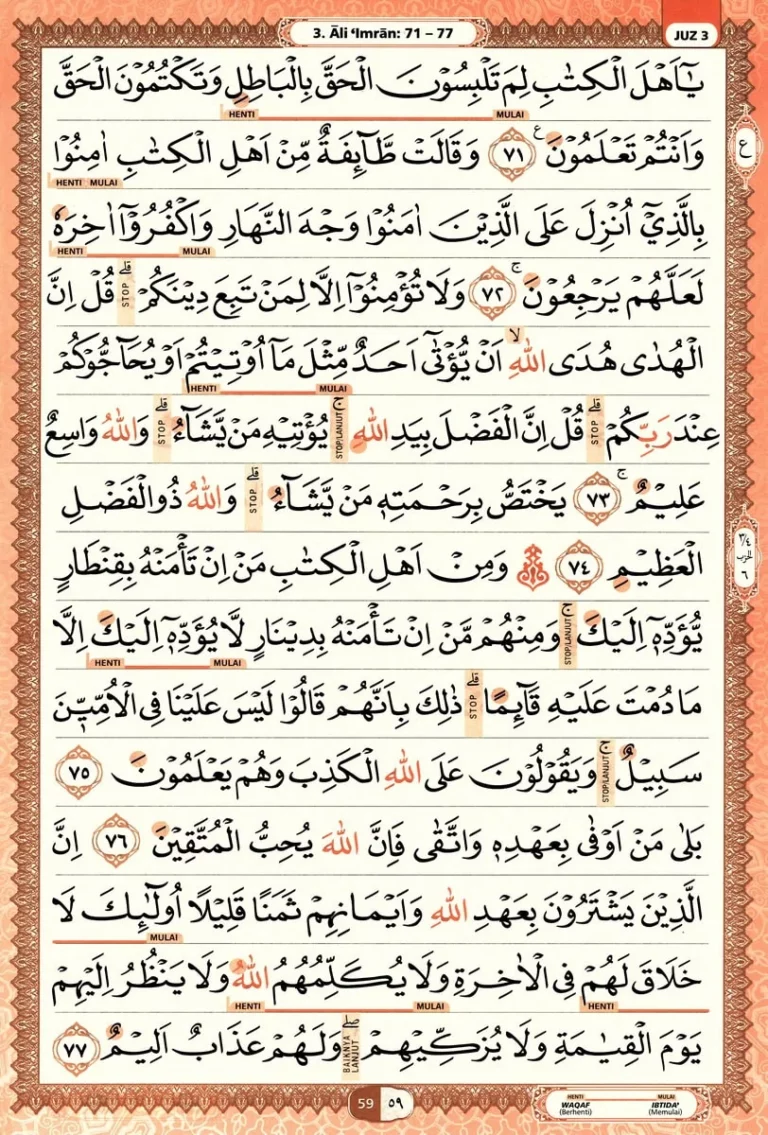 3. Āli ‘Imrān: 71 – 77
JUZ 3
يٰٓاَهْلَ الْكِتٰبِ لِمَ تَلْبِسُوْنَ الْحَقَّ بِالْبَاطِلِ وَتَكْتُمُوْنَ الْحَقَّ
HENTI MULAI
وَاَنْتُمْ تَعْلَمُوْنَ ࣖ ٧١ وَقَالَتْ طَّاۤىِٕفَةٌ مِّنْ اَهْلِ الْكِتٰبِ اٰمِنُوْا
ع
HENTI MULAI
بِالَّذِيْٓ اُنْزِلَ عَلَى الَّذِيْنَ اٰمَنُوْا وَجْهَ النَّهَارِ وَاكْفُرُوْٓا اٰخِرَهٗ
HENTI MULAI
لَعَلَّهُمْ يَرْجِعُوْنَۚ ٧٢ وَلَا تُؤْمِنُوْٓا اِلَّا لِمَنْ تَبِعَ دِيْنَكُمْ ۗ STOP قُلْ اِنَّ
الْهُدٰى هُدَى اللّٰهِ ۙ اَنْ يُّؤْتٰىٓ اَحَدٌ مِّثْلَ مَآ اُوْتِيْتُمْ اَوْ يُحَاۤجُّوْكُمْ
HENTI MULAI
عِنْدَ رَبِّكُمْ ۗ STOP قُلْ اِنَّ الْفَضْلَ بِيَدِ اللّٰهِ ۚ STOP/LANJUT يُؤْتِيْهِ مَنْ يَّشَاۤءُ ۗ STOP وَاللّٰهُ وَاسِعٌ
عَلِيْمٌ ۚ ٧٣ يَخْتَصُّ بِرَحْمَتِهٖ مَنْ يَّشَاۤءُ ۗ STOP وَاللّٰهُ ذُو الْفَضْلِ
٣/٤ الحزب ٦
الْعَظِيْمِ ٧٤ ۞ وَمِنْ اَهْلِ الْكِتٰبِ مَنْ اِنْ تَأْمَنْهُ بِقِنْطَارٍ
يُّؤَدِّهٖٓ اِلَيْكَ ۚ STOP/LANJUT وَمِنْهُمْ مَّنْ اِنْ تَأْمَنْهُ بِدِيْنَارٍ لَّا يُؤَدِّهٖٓ اِلَيْكَ اِلَّا
HENTI MULAI
مَا دُمْتَ عَلَيْهِ قَاۤىِٕمًا ۗ STOP ذٰلِكَ بِاَنَّهُمْ قَالُوْا لَيْسَ عَلَيْنَا فِى الْاُمِّيّٖنَ
سَبِيْلٌ ۚ STOP/LANJUT وَيَقُوْلُوْنَ عَلَى اللّٰهِ الْكَذِبَ وَهُمْ يَعْلَمُوْنَ ٧٥
بَلٰى مَنْ اَوْفٰى بِعَهْدِهٖ وَاتَّقٰى فَاِنَّ اللّٰهَ يُحِبُّ الْمُتَّقِيْنَ ٧٦ اِنَّ
الَّذِيْنَ يَشْتَرُوْنَ بِعَهْدِ اللّٰهِ وَاَيْمَانِهِمْ ثَمَنًا قَلِيْلًا اُولٰۤىِٕكَ لَا
MULAI
خَلَاقَ لَهُمْ فِى الْاٰخِرَةِ وَلَا يُكَلِّمُهُمُ اللّٰهُ وَلَا يَنْظُرُ اِلَيْهِمْ
HENTI MULAI HENTI
يَوْمَ الْقِيٰمَةِ وَلَا يُزَكِّيْهِمْ ۖ BAIKNYA LANJUT وَلَهُمْ عَذَابٌ اَلِيْمٌ ٧٧
59 ٥٩
HENTI MULAI
WAQAF IBTIDA'
(Berhenti) (Memulai)